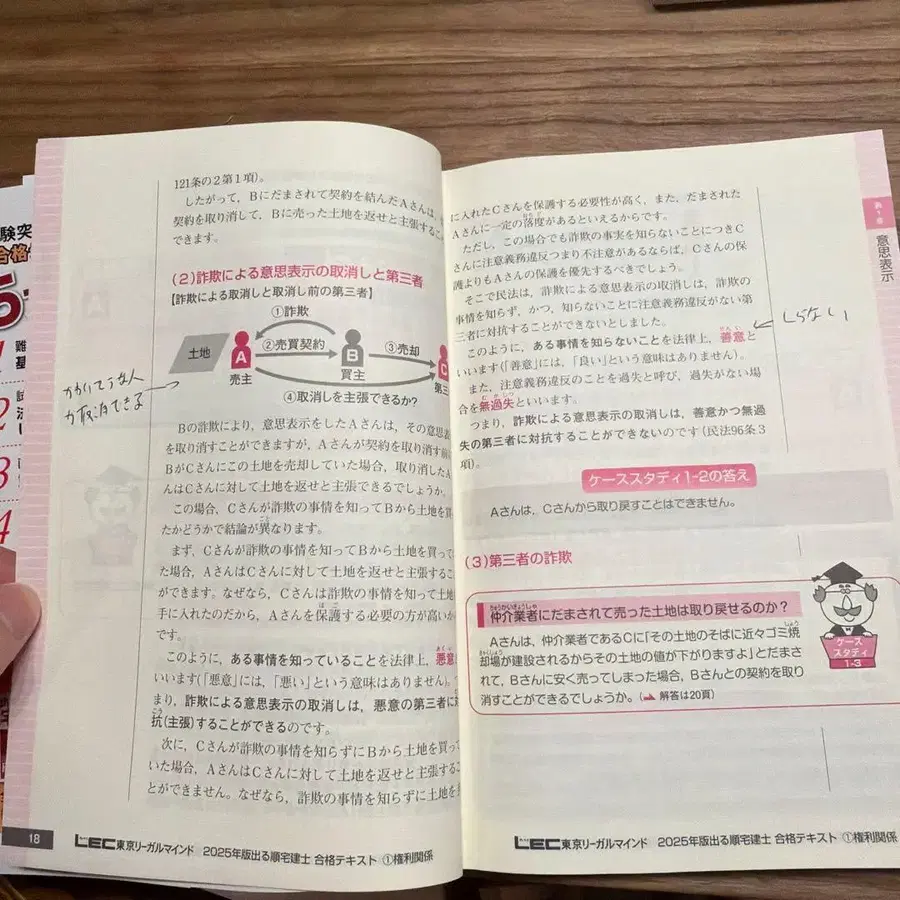 121条の2第1項)。
したがって，Bにだまされて契約を結んだAさんは，
契約を取り消して，Bに売った土地を返せと主張する
できます。
(2)詐欺による意思表示の取消しと第三者
【詐欺による取消しと取消し前の第三者】
①詐欺
土地
A
②売買契約
B
③売却
C
売主
買主
第三
④取消しを主張できるか?
かわいそうな人
が取消できる
Bの詐欺により，意思表示をしたAさんは，その意思表
を取り消すことができますが，Aさんが契約を取り消す前
BがCさんにこの土地を売却していた場合，取り消したA
んはCさんに対して土地を返せと主張できるでしょうか。
この場合，Cさんが詐欺の事情を知ってBから土地を買
たかどうかで結論が異なります。
まず，Cさんが詐欺の事情を知ってBから土地を買って
た場合，AさんはCさんに対して土地を返せと主張するこ
ができます。なぜなら，Cさんは詐欺の事情を知って土地
手に入れたのだから，Aさんを保護する必要の方が高いか
です。
このように，ある事情を知っていることを法律上，悪意
いいます(「悪意」には，「悪い」という意味はありません)。
まり，詐欺による意思表示の取消しは，悪意の第三者に対
抗(主張)することができるのです。
次に，Cさんが詐欺の事情を知らずにBから土地を買っ
いた場合，AさんはCさんに対して土地を返せと主張するこ
とができません。なぜなら，詐欺の事情を知らずに土地を
18
LEC東京リーガルマインド 2025年版出る順宅建士 合格テキスト ①権利関係
に入れたCさんを保護する必要性が高く，また，だまされた
Aさんに一定の落度があるといえるからです。
ただし，この場合でも詐欺の事実を知らないことにつきC
さんに注意義務違反つまり不注意があるならば，Cさんの保
護よりもAさんの保護を優先するべきでしょう。
そこで民法は，詐欺による意思表示の取消しは，詐欺の
事情を知らず，かつ，知らないことに注意義務違反がない第
三者に対抗することができないとしました。
このように，ある事情を知らないことを法律上，善意と
いいます(「善意」には，「良い」という意味はありません)。
また，注意義務違反のことを過失と呼び，過失がない場
合を無過失といいます。
つまり，詐欺による意思表示の取消しは，善意かつ無過
失の第三者に対抗することができないのです(民法96条3
項)。
しらない
第1章
意思表示
ケーススタディ1-2の答え
Aさんは，Cさんから取り戻すことはできません。
(3)第三者の詐欺
仲介業者にだまされて売った土地は取り戻せるのか?
Aさんは，仲介業者であるCに「その土地のそばに近々ゴミ焼
却場が建設されるからその土地の値が下がりますよ」とだまさ
れて，Bさんに安く売ってしまった場合，Bさんとの契約を取り
消すことができるでしょうか。(解答は20頁)
ケース
スタディ
1-3
LEC東京リーガルマインド 2025年版出る順宅建士 合格テキスト ①権利関係